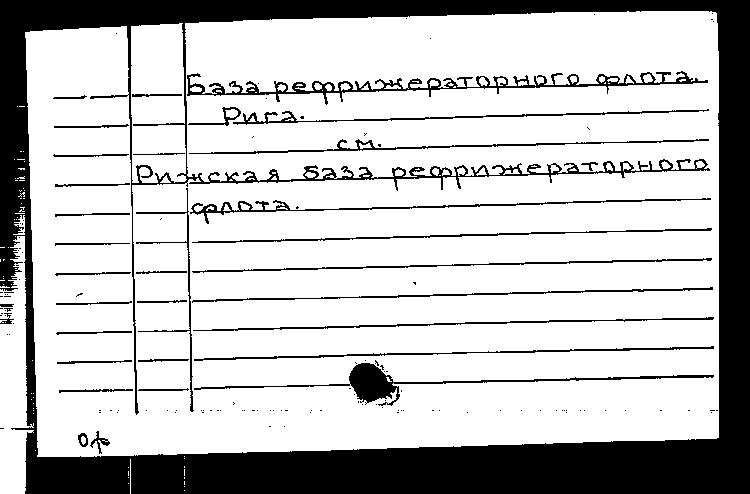 База рефрижераторного флота.
Рига.
см.
Рижская база рефрижераторного
флота.